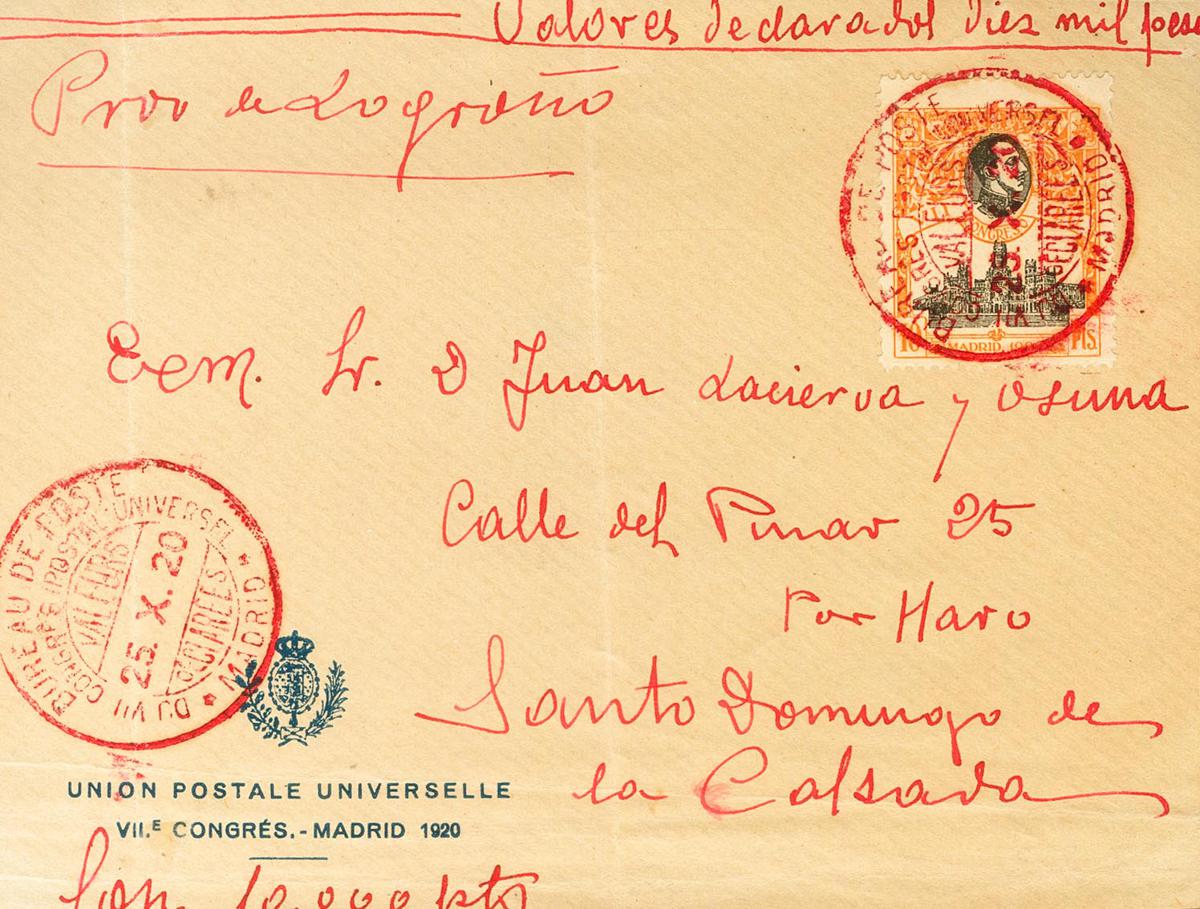 Valores declarados diez mil pese
Prov de Logroño
CONGRESO
MADRID, 19
10 PTS.
BUREAU DE POSTE
CONGRÈS POSTAL UNIVERSEL
VALEURS DÉCLARÉES
DU VII
MADRID
Exm. Sr. D Juan Lacierva y Osuna
Calle del Pinar 25
Por Haro
Santo Domingo de
la Calsada
BUREAU DE POSTE
CONGRÈS POSTAL UNIVERSEL
VALEURS
25. X. 20
DÉCLARÉES
DU VII
MADRID
UNION POSTALE UNIVERSELLE
VII.E CONGRÉS.-MADRID 1920
Son 10.000 pts